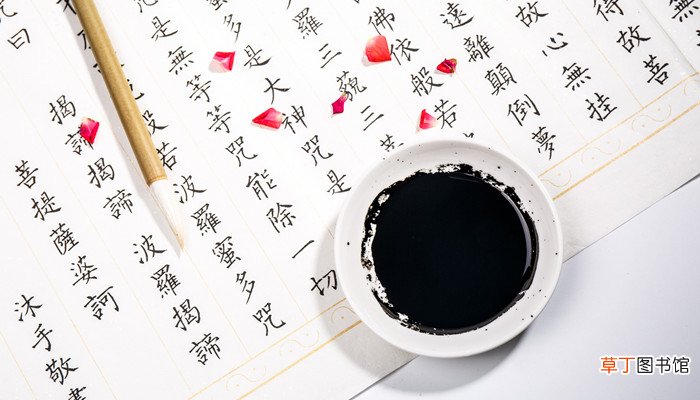 得故菩
故心無挂
遠離顛倒夢
佛依般若
羅三藐三
多是大神咒是
是無等等咒能除一切
般若波羅蜜多咒
曰 揭諦揭諦 波羅揭諦
菩提薩婆訶
沐手敬書
草丁图书馆